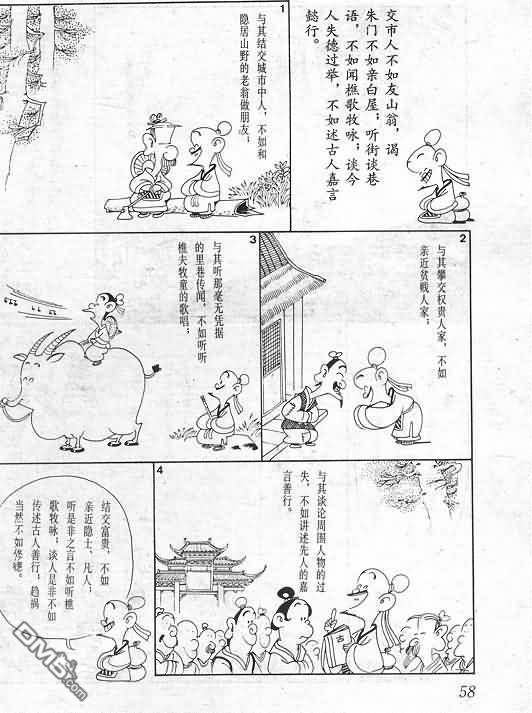 交市人不如友山翁，谒
朱门不如亲白屋；听街谈巷
语，不如闻樵歌牧咏；谈今
人失德过举，不如述古人嘉言
懿行。
1
与其结交城市中人，不如和
隐居山野的老翁做朋友；
2
与其攀交权贵人家，不如
亲近贫贱人家；
3
与其听那毫无凭据
的里巷传闻，不如听听
樵夫牧童的歌唱；
4
与其谈论周围人物的过
失，不如讲述先人的嘉
言善行。
古
结交富贵，不如
亲近隐士、凡人；
听是非之言不如听樵
歌牧咏；谈人是非不如
传述古人善行；趋祸
当然不如修德。
58
看漫画
DM5.com